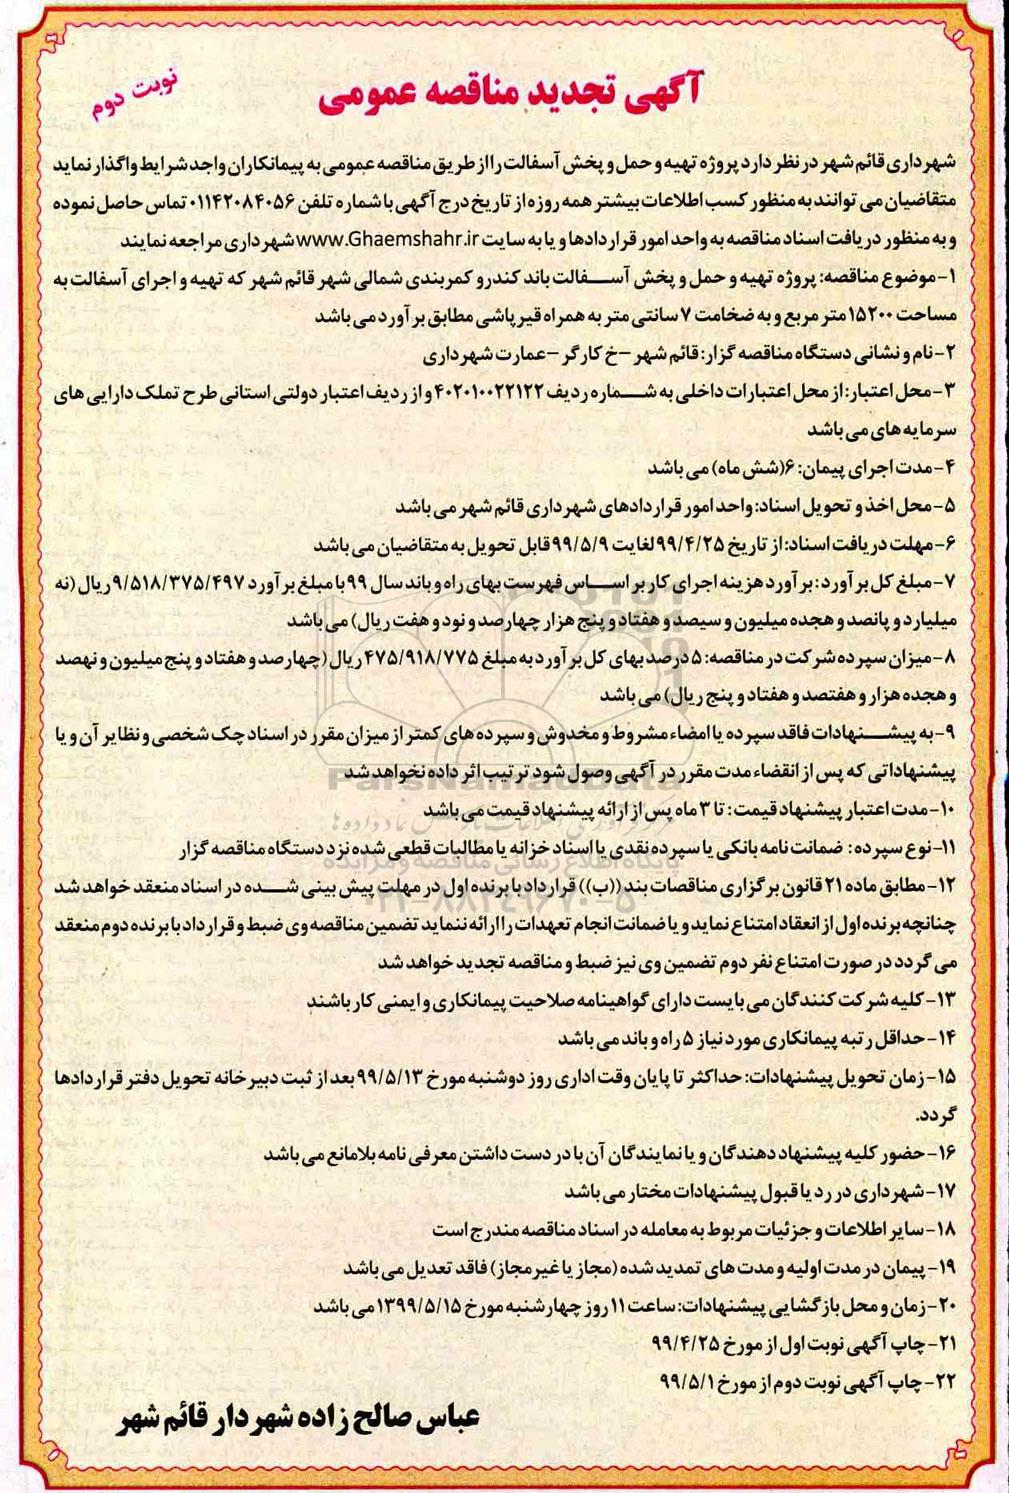 آگهی تجدید مناقصه عمومی
نوبت دوم
شهرداری قائم شهر در نظر دارد پروژه تهیه و حمل و پخش آسفالت را از طریق مناقصه عمومی به پیمانکاران واجد شرایط واگذار نماید
متقاضیان می توانند به منظور کسب اطلاعات بیشتر همه روزه از تاریخ درج آگهی با شماره تلفن ۰۱۱۴۲۰۸۴۰۵۶ تماس حاصل نموده
و به منظور دریافت اسناد مناقصه به واحد امور قراردادها و یا به سایت www.Ghaemshahr.ir شهرداری مراجعه نمایند
۱-موضوع مناقصه: پروژه تهیه و حمل و پخش آسفالت باند کندرو کمربندی شمالی شهر قائم شهر که تهیه و اجرای آسفالت به
مساحت ۱۵۲۰۰ متر مربع و به ضخامت ۷ سانتی متر به همراه قیرپاشی مطابق برآورد می باشد
۲-نام و نشانی دستگاه مناقصه گزار: قائم شهر –خ کارگر –عمارت شهرداری
۳-محل اعتبار: از محل اعتبارات داخلی به شماره ردیف ۴۰۲۰۱۰۰۲۲۱۲۲ و از ردیف اعتبار دولتی استانی طرح تملک دارایی های
سرمایه های می باشد
۴-مدت اجرای پیمان: ۶(شش ماه) می باشد
۵-محل اخذ و تحویل اسناد: واحد امور قراردادهای شهرداری قائم شهر می باشد
۶-مهلت دریافت اسناد: از تاریخ ۹۹/۴/۲۵ لغایت ۹۹/۵/۹ قابل تحویل به متقاضیان می باشد
۷-مبلغ کل برآورد: برآورد هزینه اجرای کار بر اساس فهرست بهای راه و باند سال ۹۹ با مبلغ برآورد ۹/۵۱۸/۳۷۵/۴۹۷ ریال (نه
میلیارد و پانصد و هجده میلیون و سیصد و هفتاد و پنج هزار چهارصد و نود و هفت ریال) می باشد
۸-میزان سپرده شرکت در مناقصه: ۵ درصد بهای کل برآورد به مبلغ ۴۷۵/۹۱۸/۷۷۵ ریال (چهارصد و هفتاد و پنج میلیون و نهصد
و هجده هزار و هفتصد و هفتاد و پنج ریال) می باشد
۹-به پیشنهادات فاقد سپرده یا امضاء مشروط و مخدوش و سپرده های کمتر از میزان مقرر در اسناد چک شخصی و نظایر آن و یا
پیشنهاداتی که پس از انقضاء مدت مقرر در آگهی وصول شود ترتیب اثر داده نخواهد شد
ParsNamadData
۱۰-مدت اعتبار پیشنهاد قیمت: تا ۳ ماه پس از ارائه پیشنهاد قیمت می باشد
۱۱-نوع سپرده: ضمانت نامه بانکی یا سپرده نقدی یا اسناد خزانه یا مطالبات قطعی شده نزد دستگاه مناقصه گزار
پایگاه اطلاع رسانی مناقصه و مزایده
۱۲-مطابق ماده ۲۱ قانون برگزاری مناقصات بند ((ب)) قرارداد با برنده اول در مهلت پیش بینی شده در اسناد منعقد خواهد شد
۰۲۱-۸۸۳۴۹۶۷۰-۵
چنانچه برنده اول از انعقاد امتناع نماید و یا ضمانت انجام تعهدات را ارائه ننماید تضمین مناقصه وی ضبط و قرارداد با برنده دوم منعقد
می گردد در صورت امتناع نفر دوم تضمین وی نیز ضبط و مناقصه تجدید خواهد شد
۱۳-کلیه شرکت کنندگان می بایست دارای گواهینامه صلاحیت پیمانکاری و ایمنی کار باشند
۱۴-حداقل رتبه پیمانکاری مورد نیاز ۵ راه و باند می باشد
۱۵-زمان تحویل پیشنهادات: حداکثر تا پایان وقت اداری روز دوشنبه مورخ ۹۹/۵/۱۳ بعد از ثبت دبیرخانه تحویل دفتر قراردادها
گردد.
۱۶-حضور کلیه پیشنهاد دهندگان و یا نمایندگان آن با در دست داشتن معرفی نامه بلامانع می باشد
۱۷-شهرداری در رد یا قبول پیشنهادات مختار می باشد
۱۸-سایر اطلاعات و جزئیات مربوط به معامله در اسناد مناقصه مندرج است
۱۹-پیمان در مدت اولیه و مدت های تمدید شده (مجاز یا غیرمجاز) فاقد تعدیل می باشد
۲۰-زمان و محل بازگشایی پیشنهادات: ساعت ۱۱ روز چهارشنبه مورخ ۱۳۹۹/۵/۱۵ می باشد
۲۱-چاپ آگهی نوبت اول از مورخ ۹۹/۴/۲۵
۲۲-چاپ آگهی نوبت دوم از مورخ ۹۹/۵/۱
عباس صالح زاده شهردار قائم شهر